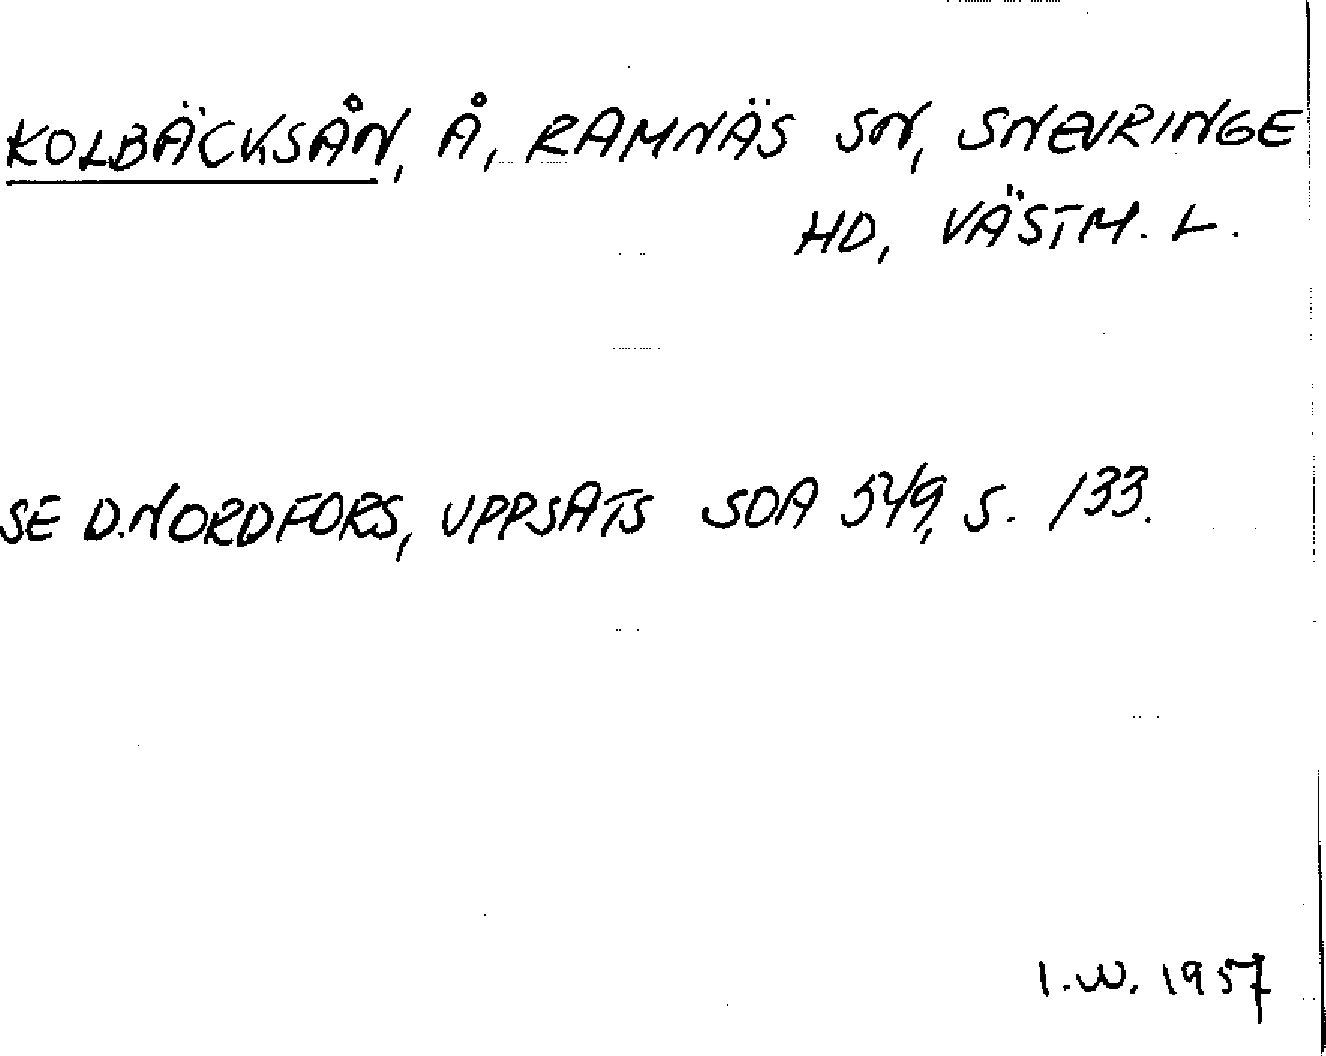 KOLBÄCKSÅN, Å, RAMNÄS SN, SNEVRINGE
HD, VÄSTM. L.
SE D.NORDFORS, UPPSATS SOA 549, S. 133.
I.W. 1957